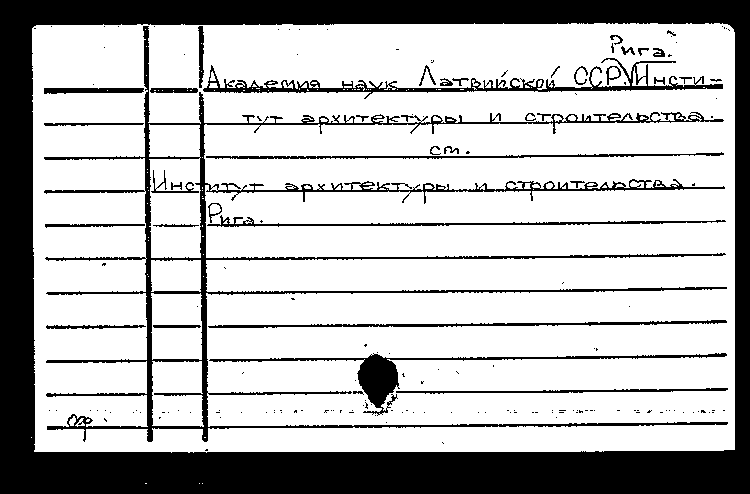 Рига.
Академия наук Латвийской ССР Инсти-
тут архитектуры и строительства.
см.
Институт архитектуры и строительства.
Рига.